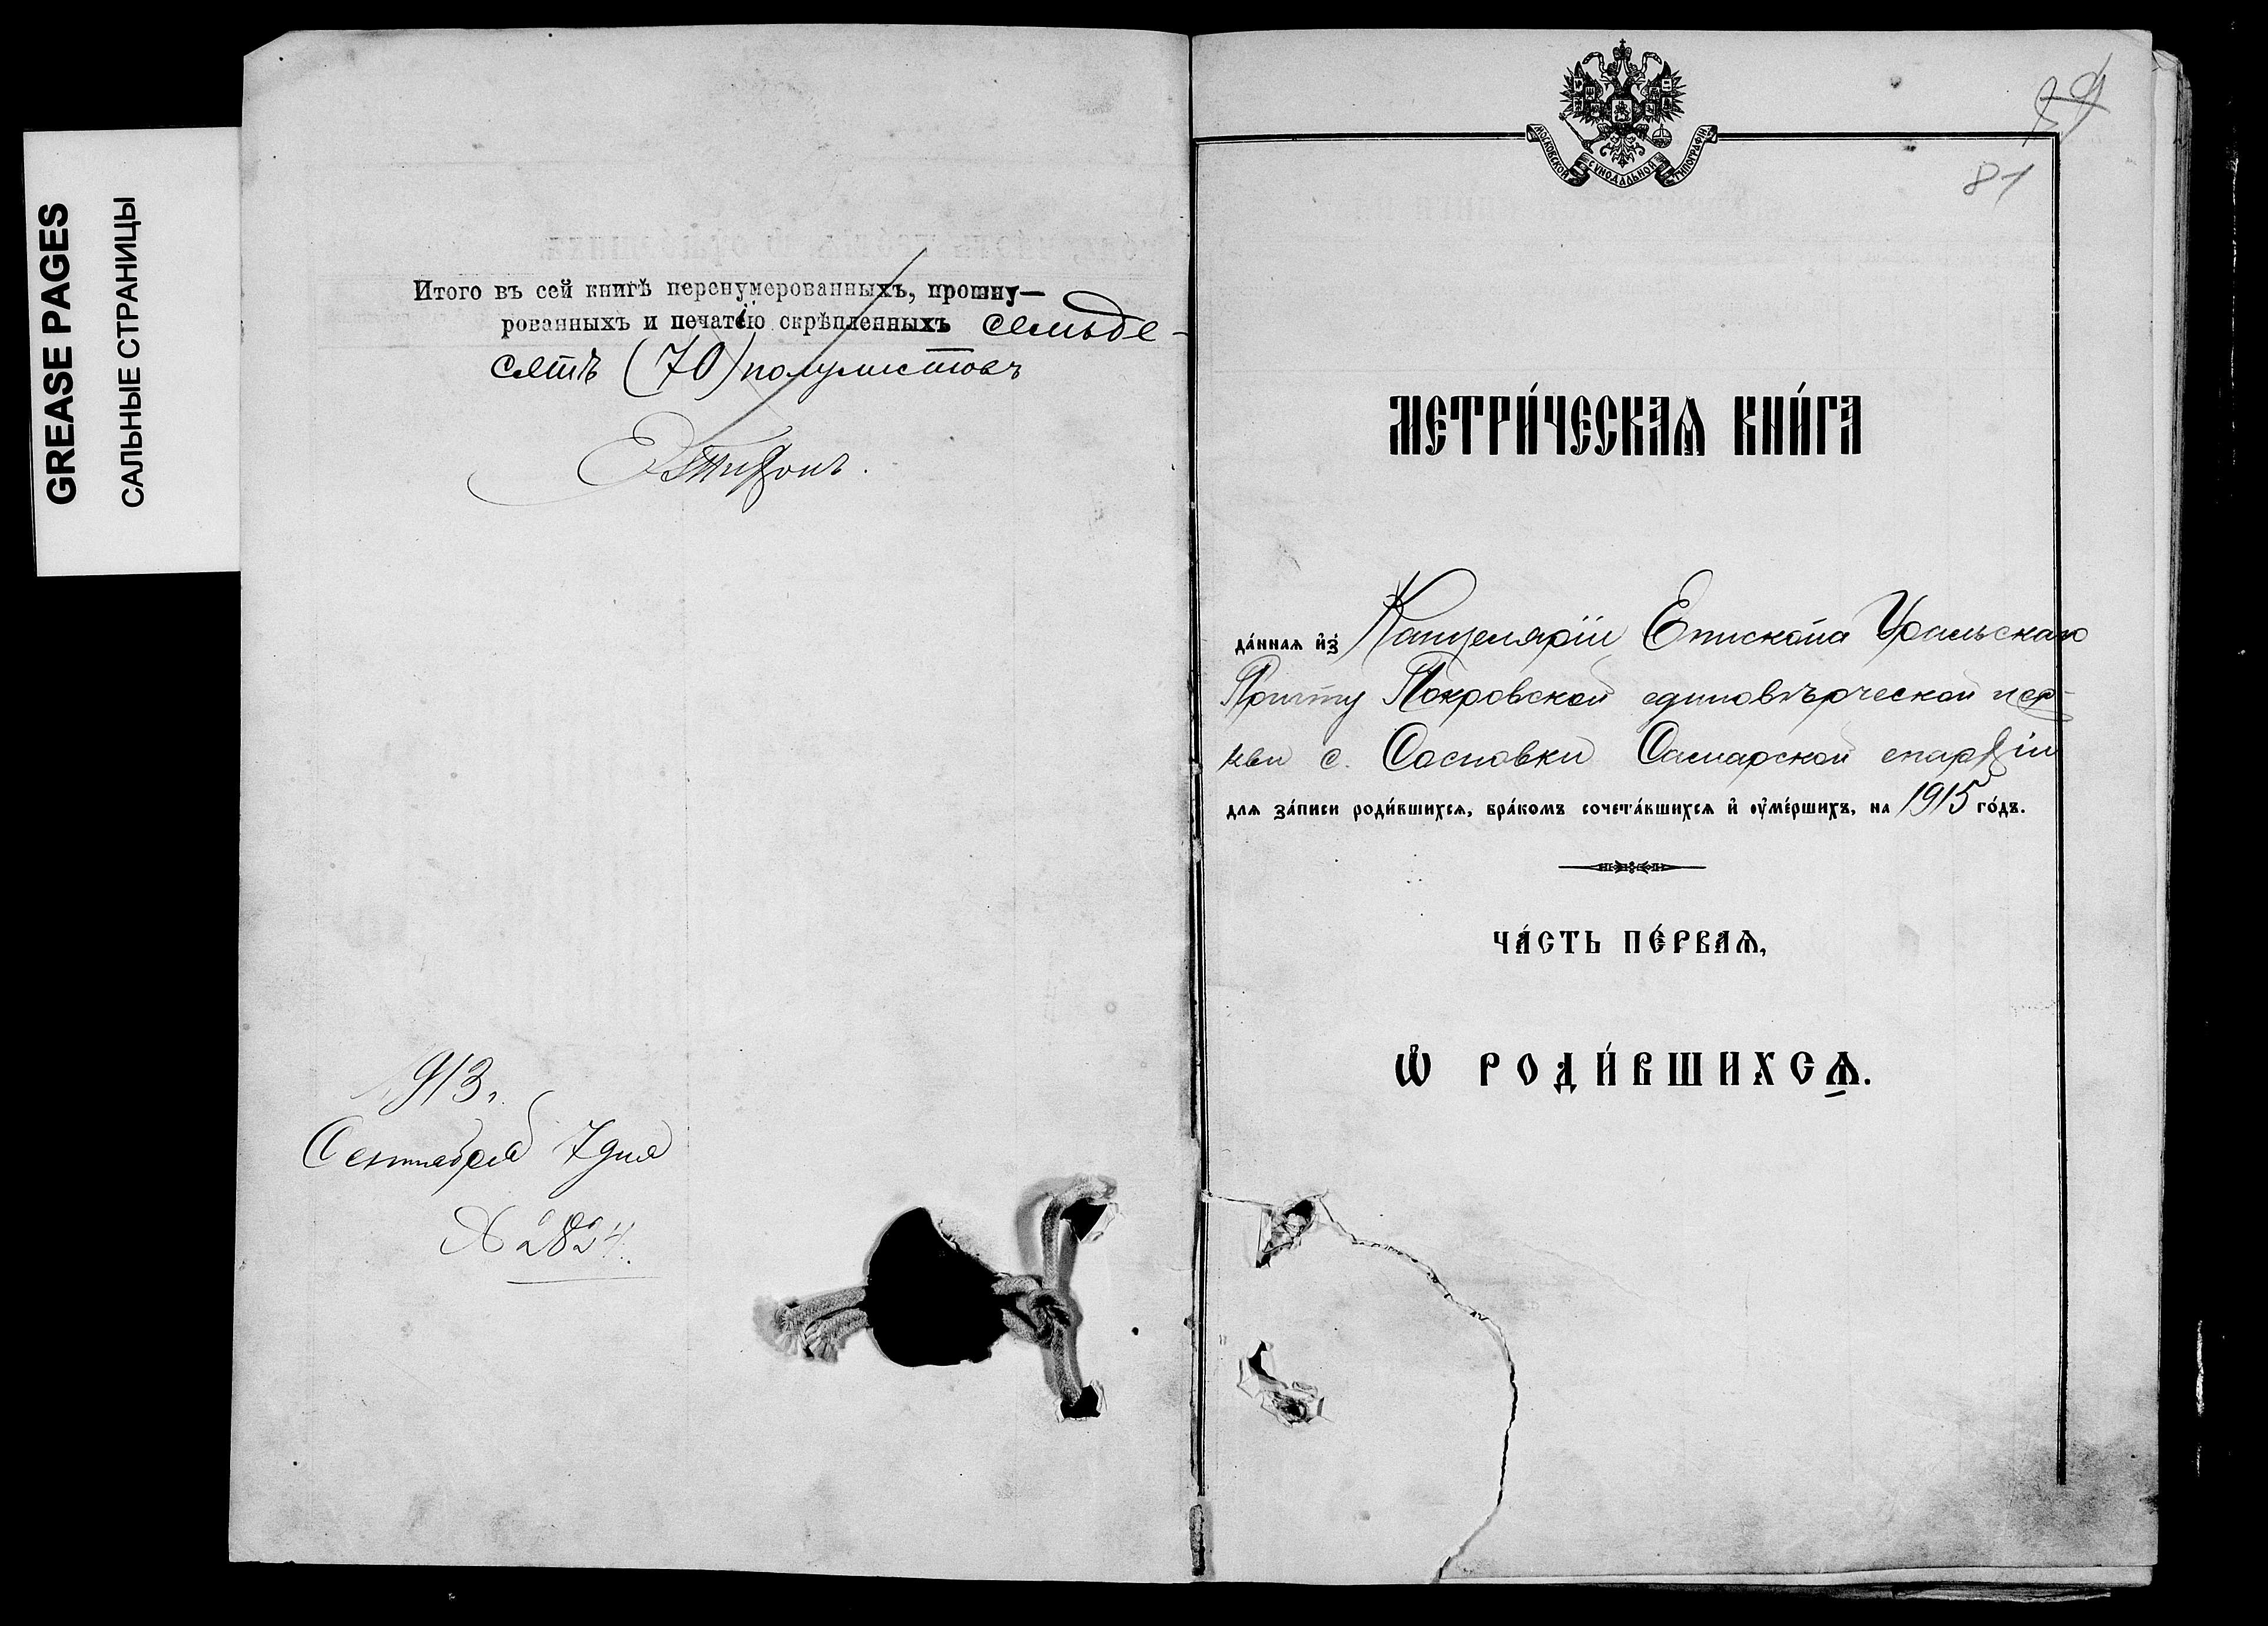 GREASE PAGES
САЛЬНЫЕ СТРАНИЦЫ
Итого въ сей книгѣ перенумерованныхъ, прошну—
рованныхъ и печатію скрѣпленныхъ семьде-
сятъ (70) полулистовъ
Е. Тихонъ.
1913 г.
Сентября 7 дня
№ 2824.
МОСКОВСКОЙ СѴНОДАЛЬНОЙ ТИПОГРАФІИ
81
МЕТРИ́ЧЕСКАѦ КНИ́ГА
да́нная и҆з̾ Канцеляріи Епископа Уральскаго
Причту Покровской единовѣрческой цер-
кви с. Сосновки Самарской епархіи
для за́писи роди́вшихся, бра́комъ сочета́вшихся и҆ ᲂу҆ме́ршихъ, на 1915 го́дъ.
ЧА́СТЬ ПЕ́РВАѦ,
Ѡ҆ РОДИ́ВШИХСѦ.